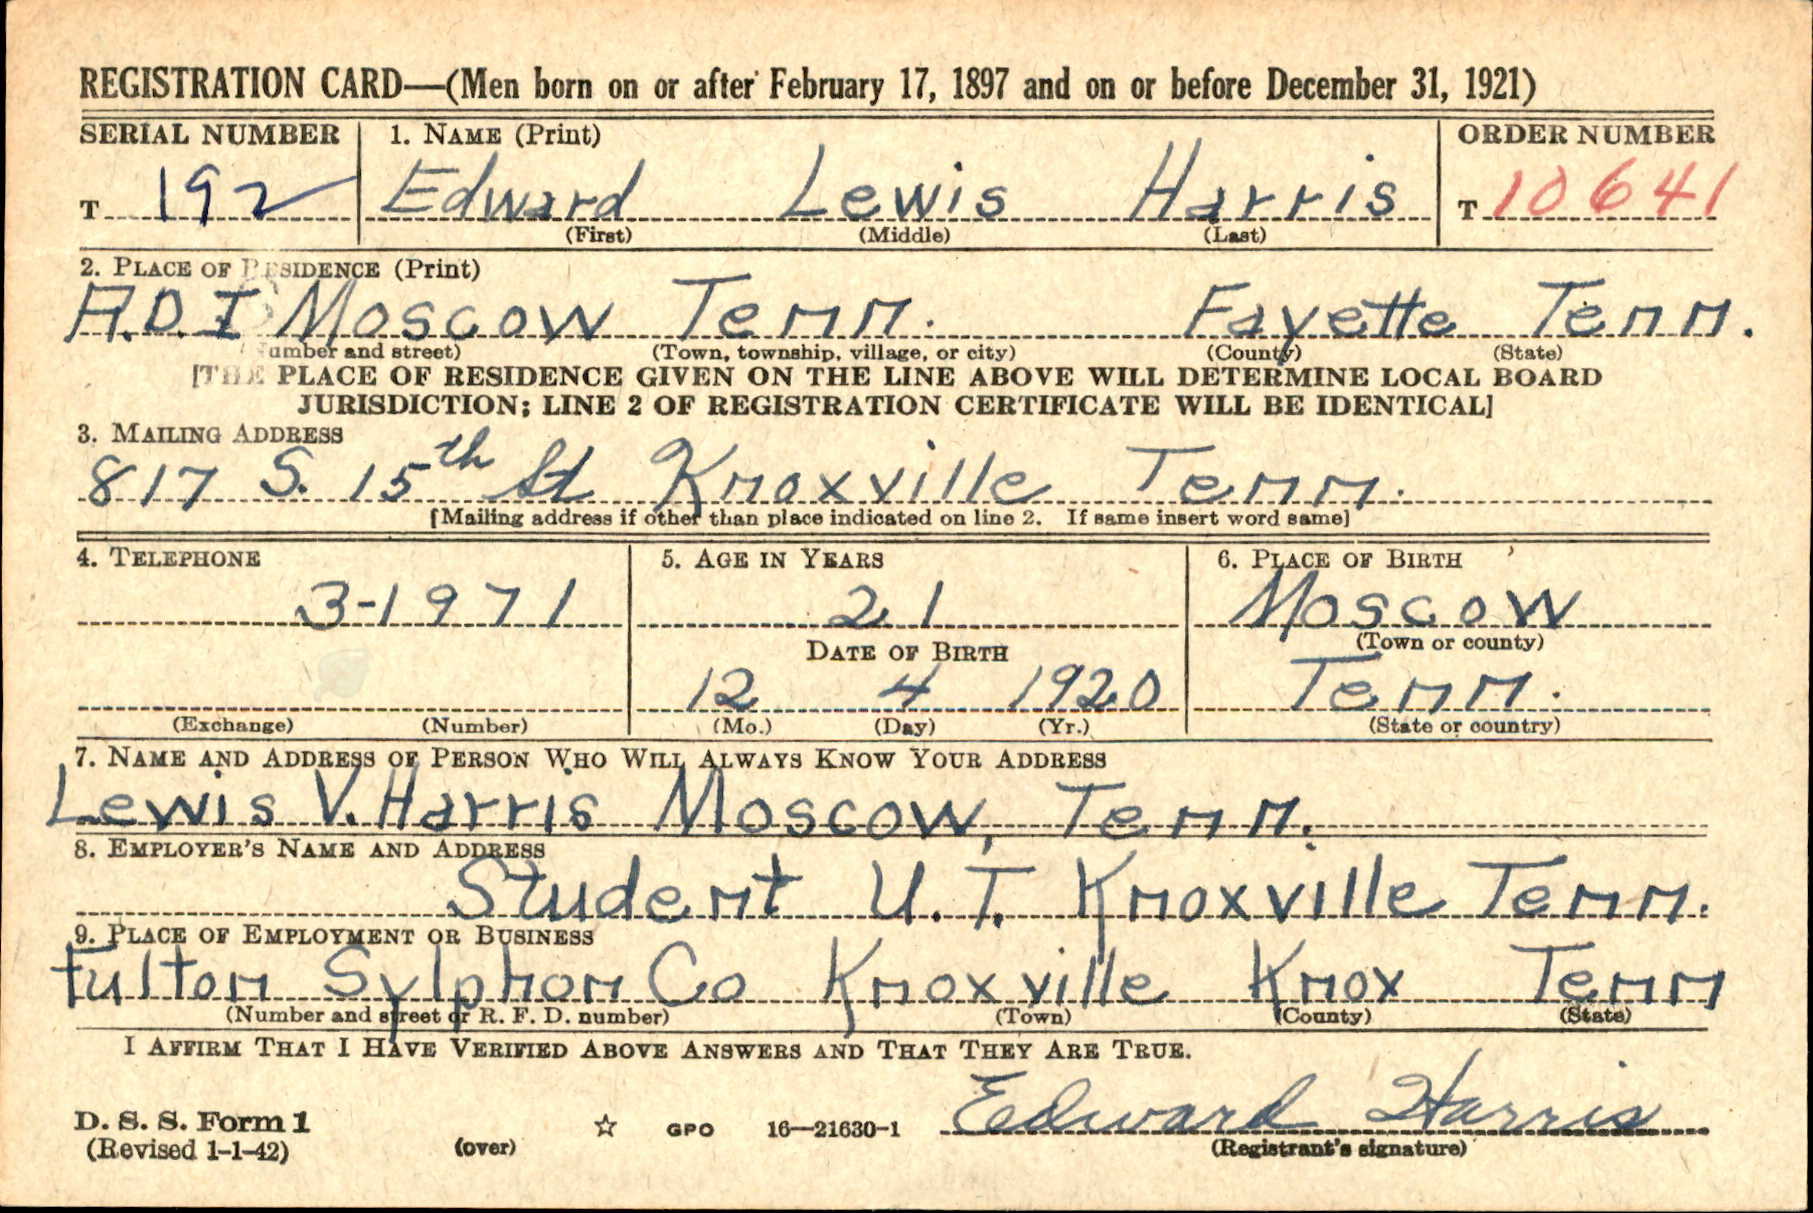 REGISTRATION CARD—(Men born on or after February 17, 1897 and on or before December 31, 1921)
SERIAL NUMBER 1. NAME (Print) ORDER NUMBER
T 192 Edward Lewis Harris T 10641
(First) (Middle) (Last)
2. PLACE OF RESIDENCE (Print)
R.D. I Moscow Tenn. Fayette Tenn.
(Number and street) (Town, township, village, or city) (County) (State)
[THE PLACE OF RESIDENCE GIVEN ON THE LINE ABOVE WILL DETERMINE LOCAL BOARD
JURISDICTION; LINE 2 OF REGISTRATION CERTIFICATE WILL BE IDENTICAL]
3. MAILING ADDRESS
817 S. 15th St Knoxville Tenn.
[Mailing address if other than place indicated on line 2. If same insert word same]
4. TELEPHONE 5. AGE IN YEARS 6. PLACE OF BIRTH
3-1971 21 Moscow
DATE OF BIRTH (Town or county)
12 4 1920 Tenn.
(Exchange) (Number) (Mo.) (Day) (Yr.) (State or country)
7. NAME AND ADDRESS OF PERSON WHO WILL ALWAYS KNOW YOUR ADDRESS
Lewis V. Harris Moscow, Tenn.
8. EMPLOYER'S NAME AND ADDRESS
Student U.T. Knoxville Tenn.
9. PLACE OF EMPLOYMENT OR BUSINESS
Fulton Sylphon Co Knoxville Knox Tenn
(Number and street or R. F. D. number) (Town) (County) (State)
I AFFIRM THAT I HAVE VERIFIED ABOVE ANSWERS AND THAT THEY ARE TRUE.
Edward Harris
D. S. S. Form 1
(Revised 1-1-42) (over) ☆ GPO 16—21630-1 (Registrant's signature)